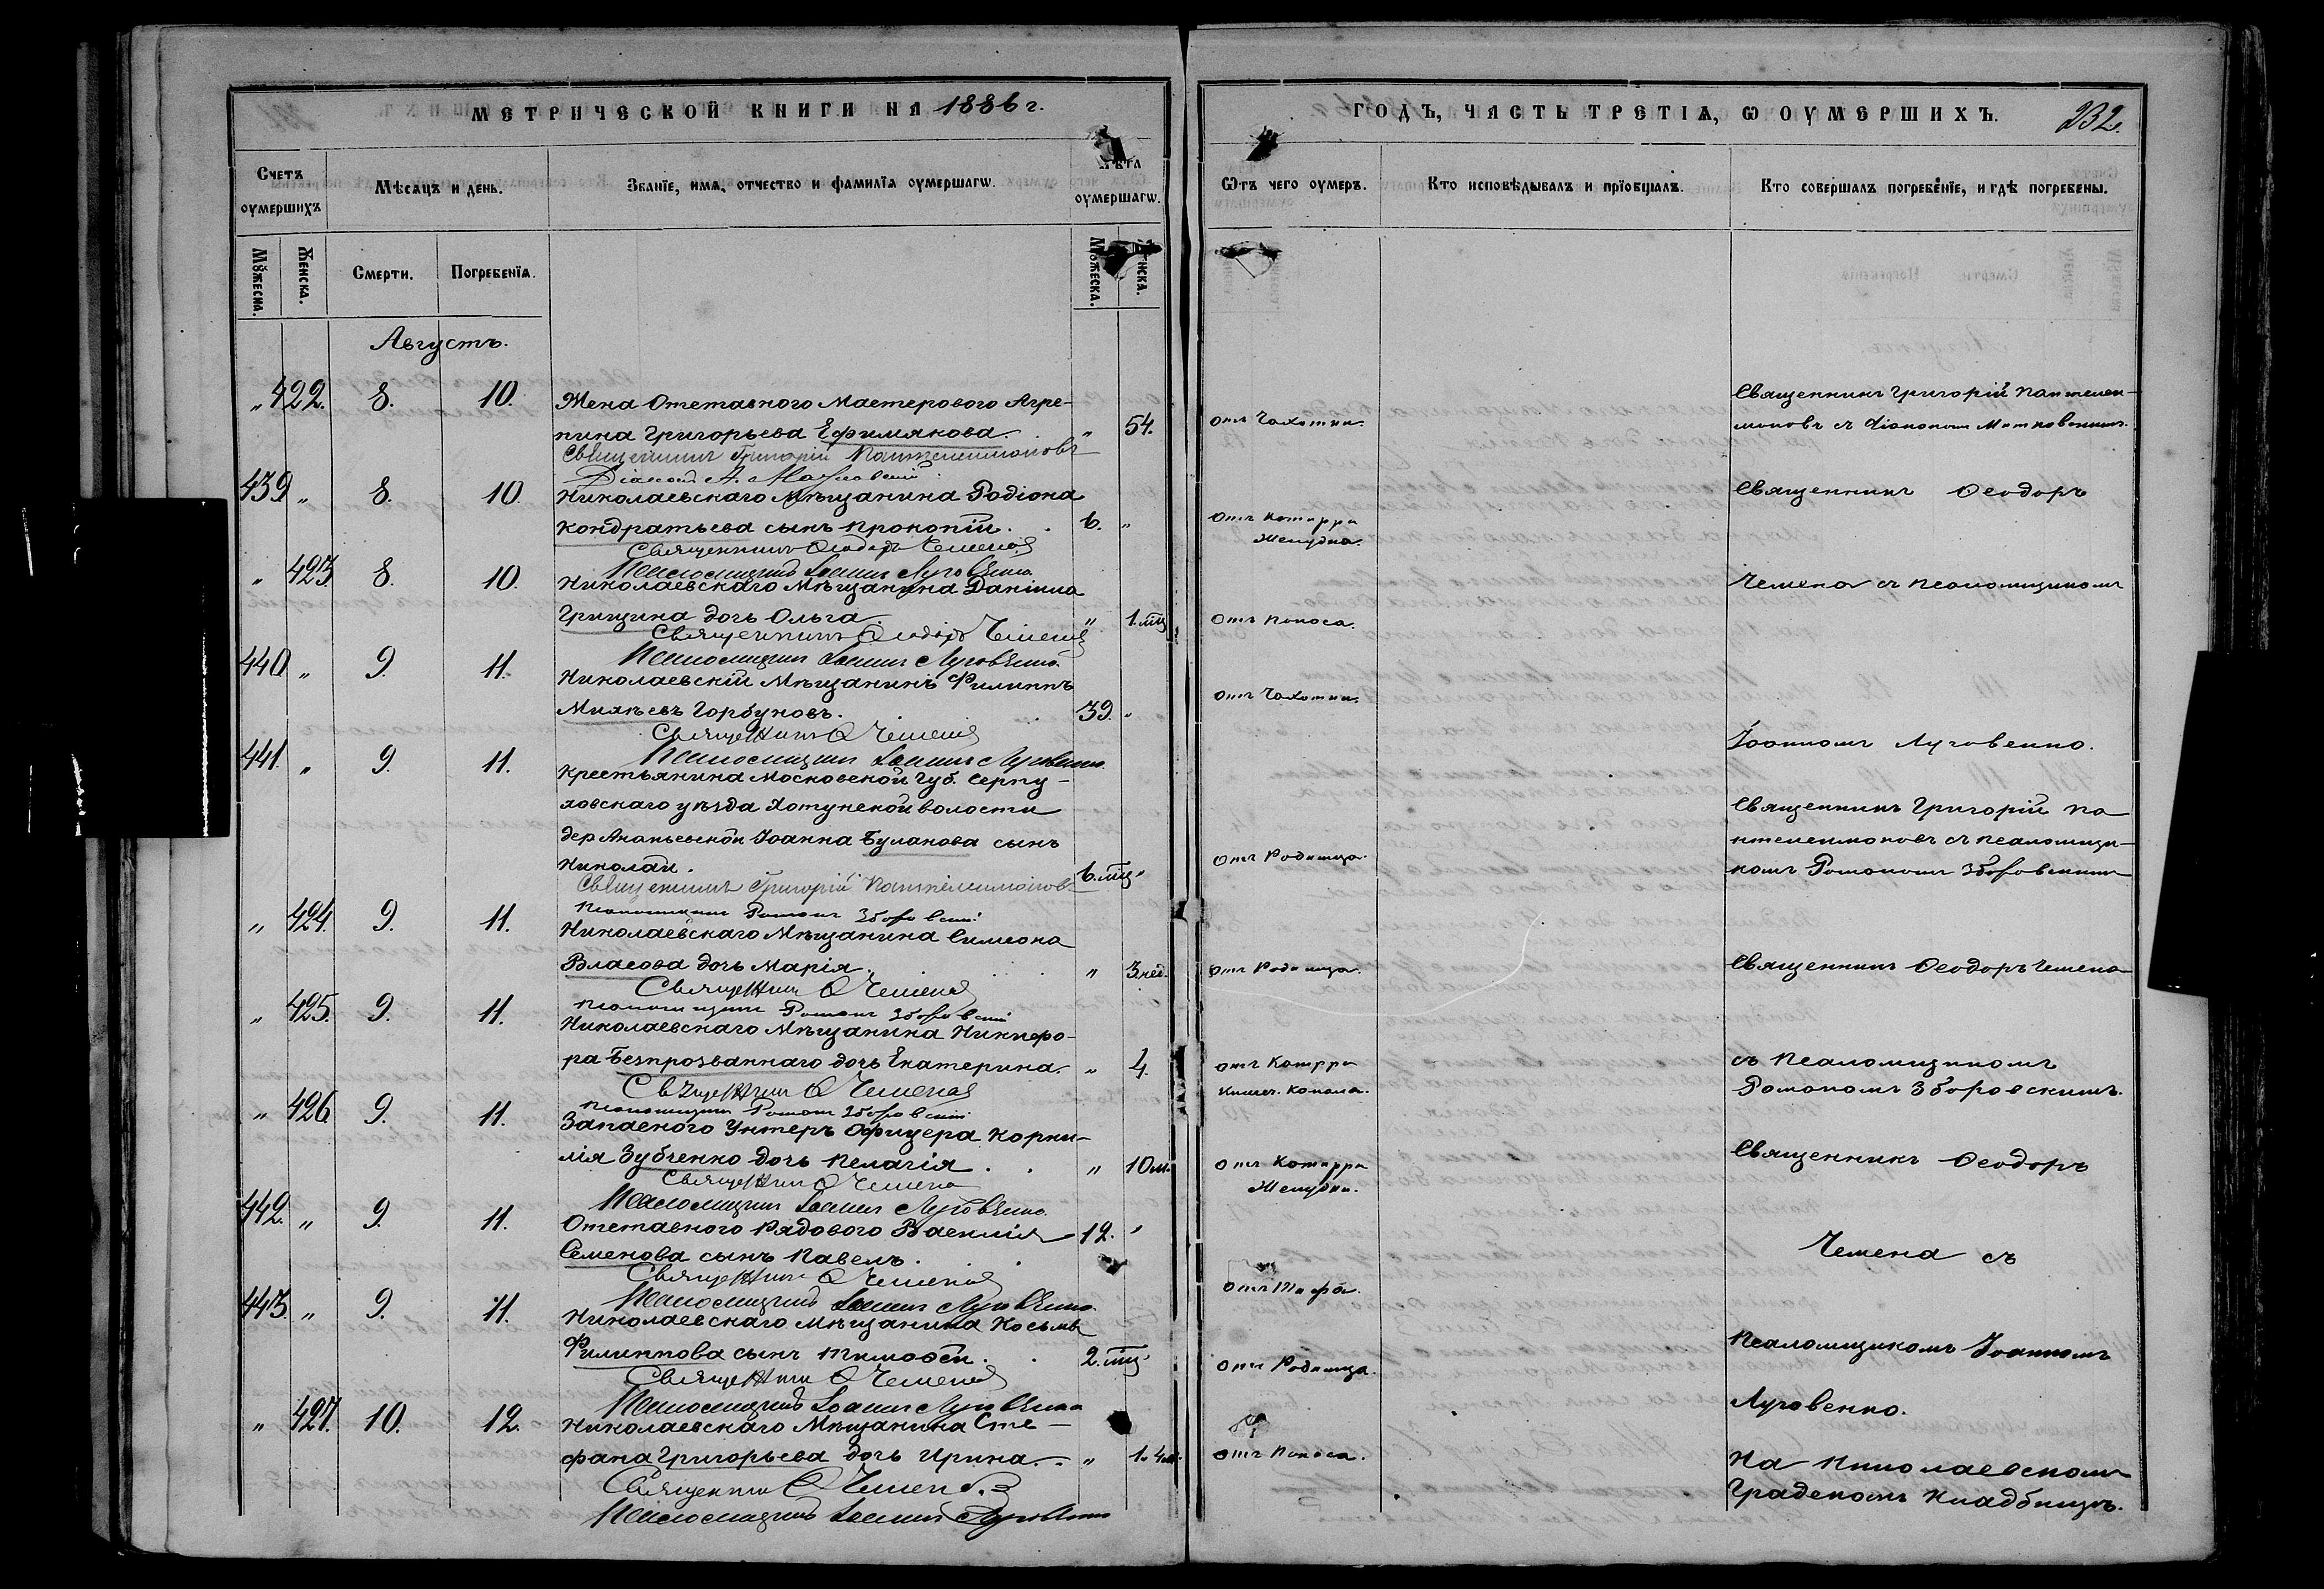 МЕТРИЧЕСКОЙ КНИГИ НА 1886 г.
Счетъ оумершихъ
Мѣсяцъ и день.
Званїе, имѧ, отчество и фамилїѧ оумершагѡ.
Лѣта оумершагѡ.
Мꙋжеска.
Женска.
Смерти.
Погребенїѧ.
Мꙋжеска.
Женска.
Августъ.
„ 422. 8. 10. Жена Отставного Мастерового Агре-
пина Григорьева Ефимякова. „ 54.
Священникъ Григорій Пантелеимоновъ
Діаконъ А.
439 „ 8. 10. Николаевскаго Мѣщанина Родіона
Кондратьева сынъ Прокопій. 6. „
Священникъ Ѳеодоръ Чемена
Псаломщикъ Іоаннъ Луговенко
„ 423 8. 10. Николаевскаго Мѣщанина Даніила
Грищина дочь Ольга. „ 1. мц
Священникъ Ѳеодоръ Чемена
Псаломщикъ Іоаннъ Луговенко
440 „ 9. 11. Николаевскій Мѣщанинъ Филиппъ
Михѣевъ Горбуновъ. 39. „
Священникъ Ѳ Чемена
Псаломщикъ Іоаннъ Луговенко
441. „ 9. 11. Крестьянина Московской Губ. Серпу-
ховскаго уѣзда Хотунской волости
дер Ананьевской Іоанна Буланова сынъ
Николай. 6. мц „
Священникъ Григорій Пантелеимоновъ
Псаломщикъ Романъ Зборовскій
„ 424. 9. 11. Николаевскаго Мѣщанина Симеона
Власова дочь Марія. „ 3 нед.
Священникъ Ѳ Чемена
Псаломщикъ Романъ Зборовскій
„ 425. 9. 11. Николаевскаго Мѣщанина Никифо-
ра Безпрозваннаго дочь Екатерина. „ 4.
Священникъ Ѳ Чемена
Псаломщикъ Романъ Зборовскій
„ 426 9. 11. Запасного Унтеръ Офицера Корни-
лія Зубченко дочь Пелагія. „ 10 м.
Священникъ Ѳ Чемена
Псаломщикъ Іоаннъ Луговенко
442. „ 9. 11. Отставного Рядового Василія 12. „
Семенова сынъ Павелъ.
Священникъ Ѳ Чемена
Псаломщикъ Іоаннъ Луговенко
443. „ 9. 11. Николаевскаго Мѣщанина Косьмы
Филиппова сынъ Тимоѳей. 2. мц
Священникъ Ѳ Чемена
Псаломщикъ Іоаннъ Луговенко
„ 427. 10. 12. Николаевскаго Мѣщанина Сте-
фана Григорьева дочь Ирина. „ 1. 4 м.
Священникъ Ѳ Чемена
Псаломщикъ Іоаннъ Луговенко
ГОДЪ, ЧАСТЬ ТРЕТІѦ, Ѡ ОУМЕРШИХЪ. 232.
Ѿтъ чего оумеръ.
Кто исповѣдывалъ и прїобщалъ.
Кто совершалъ погребенїе, и гдѣ погребены.
отъ Чахотки.
Священникъ Григорій Пантелеи-
моновъ съ Діакономъ
отъ Катарра
Желудка.
Священникъ Ѳеодоръ
отъ Поноса.
Чемена съ Псаломщикомъ
отъ Чахотки.
Іоанномъ Луговенко.
отъ Родимца.
Священникъ Григорій Па
нтелеимоновъ съ Псаломщи-
комъ Романомъ Зборовскимъ
отъ Родимца.
Священникъ Ѳеодоръ Чемена
отъ Катрра
Кишеч. Канала.
съ Псаломщикомъ
Романомъ Зборовскимъ.
отъ Катарра
Желудка.
Священникъ Ѳеодоръ
отъ Тифа.
Чемена съ
отъ Родимца.
Псаломщикомъ Іоанномъ
Луговенко.
отъ Поноса.
На Николаевскомъ
Градскомъ Кладбищѣ.